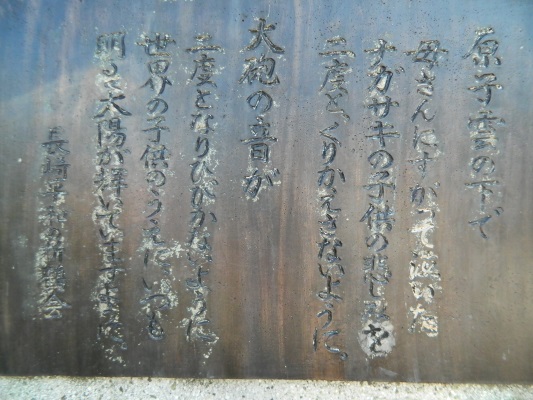 原子雲の下で
母さんにすがって泣いた
ナガサキの子供の悲しみを
二度とくりかえさないように、
大砲の音が
二度となりひびかないように、
世界の子供のうえに、いつも
明るい太陽が輝いていますように、
長崎平和の
会